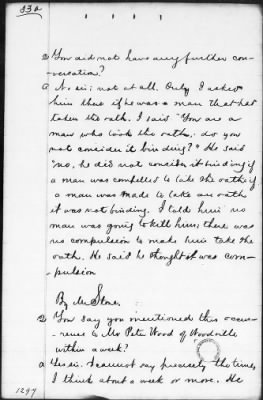 832
Q You did not have any further con-
versation?
A No sir; not at all. Only I asked
him thus if he was a man that had
taken the oath. I said "You are a
man who took the oath, do you
not consider it binding?" He said
"no, he did not consider it binding if
a man was compelled to take the oath, if
a man was made to take an oath
it was not binding. I told him no
man was going to kill him, there was
no compulsion to make him take the
oath. He said he thought it was com-
pulsion
By Mr Stone.
Q You say you mentioned this occur-
rence to Mr Peter Wood of Woodville
within a week?
A Yes sir. I cannot say precisely the time,
I think about a week or more. He
1297